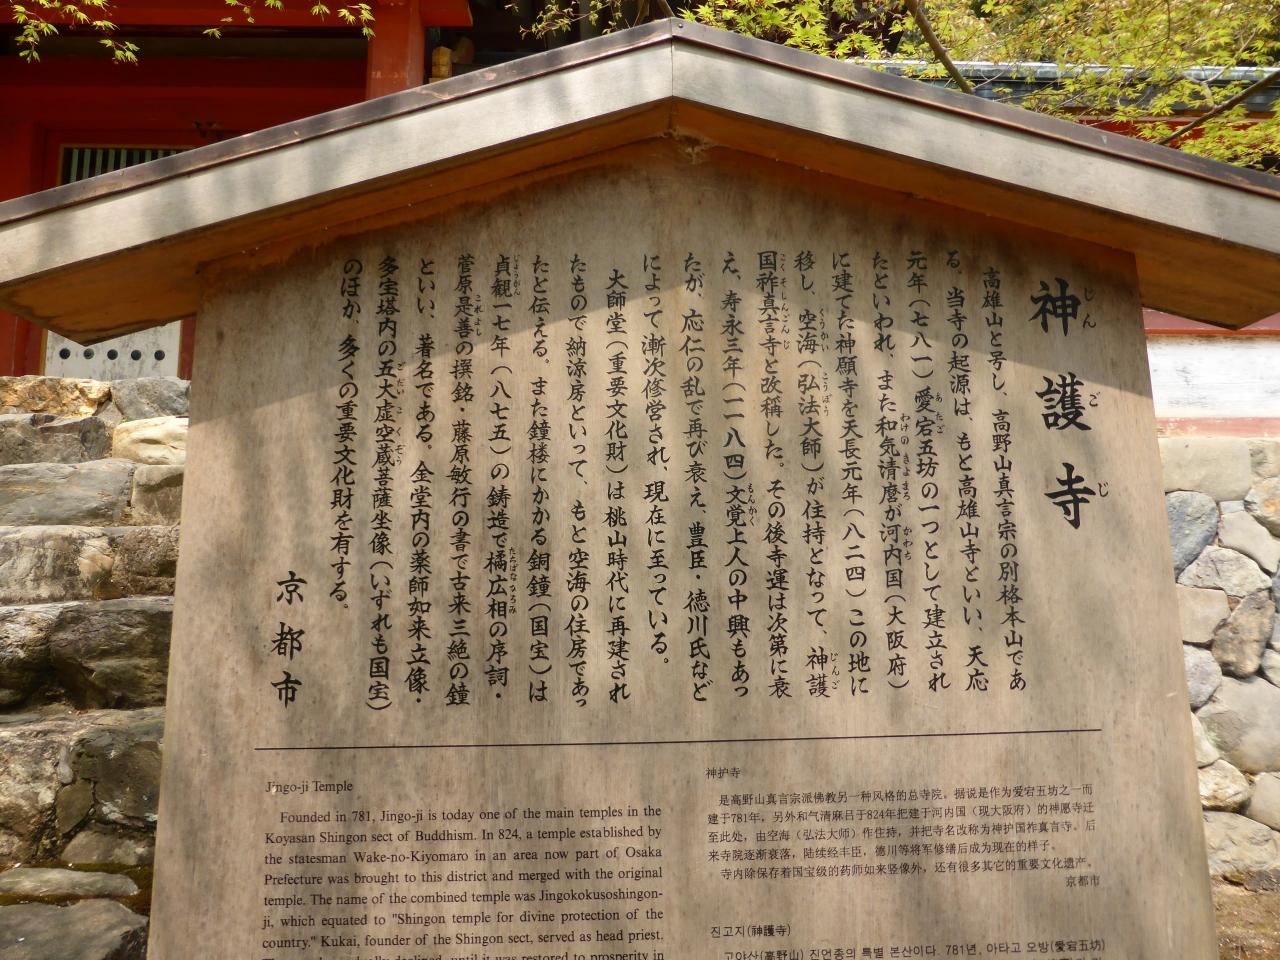 神護寺
高雄山と号し、高野山真言宗の別格本山であ
る。当寺の起源は、もと高雄山寺といい、天応
元年（七八一）愛宕五坊の一つとして建立され
たといわれ、また和気清麿が河内国（大阪府）
に建てた神願寺を天長元年（八二四）この地に
移し、空海（弘法大師）が住持となって、神護
国祚真言寺と改稱した。その後寺運は次第に衰
え、寿永三年（一一八四）文覚上人の中興もあっ
たが、応仁の乱で再び衰え、豊臣・徳川氏など
によって漸次修営され、現在に至っている。
大師堂（重要文化財）は桃山時代に再建され
たもので納涼房といって、もと空海の住房であっ
たと伝える。また鐘楼にかかる銅鐘（国宝）は
貞観一七年（八七五）の鋳造で橘広相の序詞・
菅原是善の撰銘・藤原敏行の書で古来三絶の鐘
といい、著名である。金堂内の薬師如来立像・
多宝塔内の五大虚空蔵菩薩坐像（いずれも国宝）
のほか、多くの重要文化財を有する。
京都市
Jingo-ji Temple
Founded in 781, Jingo-ji is today one of the main temples in the
Koyasan Shingon sect of Buddhism. In 824, a temple established by
the statesman Wake-no-Kiyomaro in an area now part of Osaka
Prefecture was brought to this district and merged with the original
temple. The name of the combined temple was Jingokokusoshingon-
ji, which equated to "Shingon temple for divine protection of the
country." Kukai, founder of the Shingon sect, served as head priest.
神护寺
是高野山真言宗派佛教另一种风格的总寺院。据说是作为爱宕五坊之一而
建于781年，另外和气清麻吕于824年把建于河内国（现大阪府）的神愿寺迁
至此处，由空海（弘法大师）作住持，并把寺名改称为神护国祚真言寺。后
来寺院逐渐衰落，陆续经丰臣，德川等将军修缮后成为现在的样子。
寺内除保存着国宝级的药师如来竖像外，还有很多其它的重要文化遗产。
京都市
진고지(神護寺)
고야산(高野山) 진언종의 특별 본산이다. 781년, 아타고 오방(愛宕五坊)